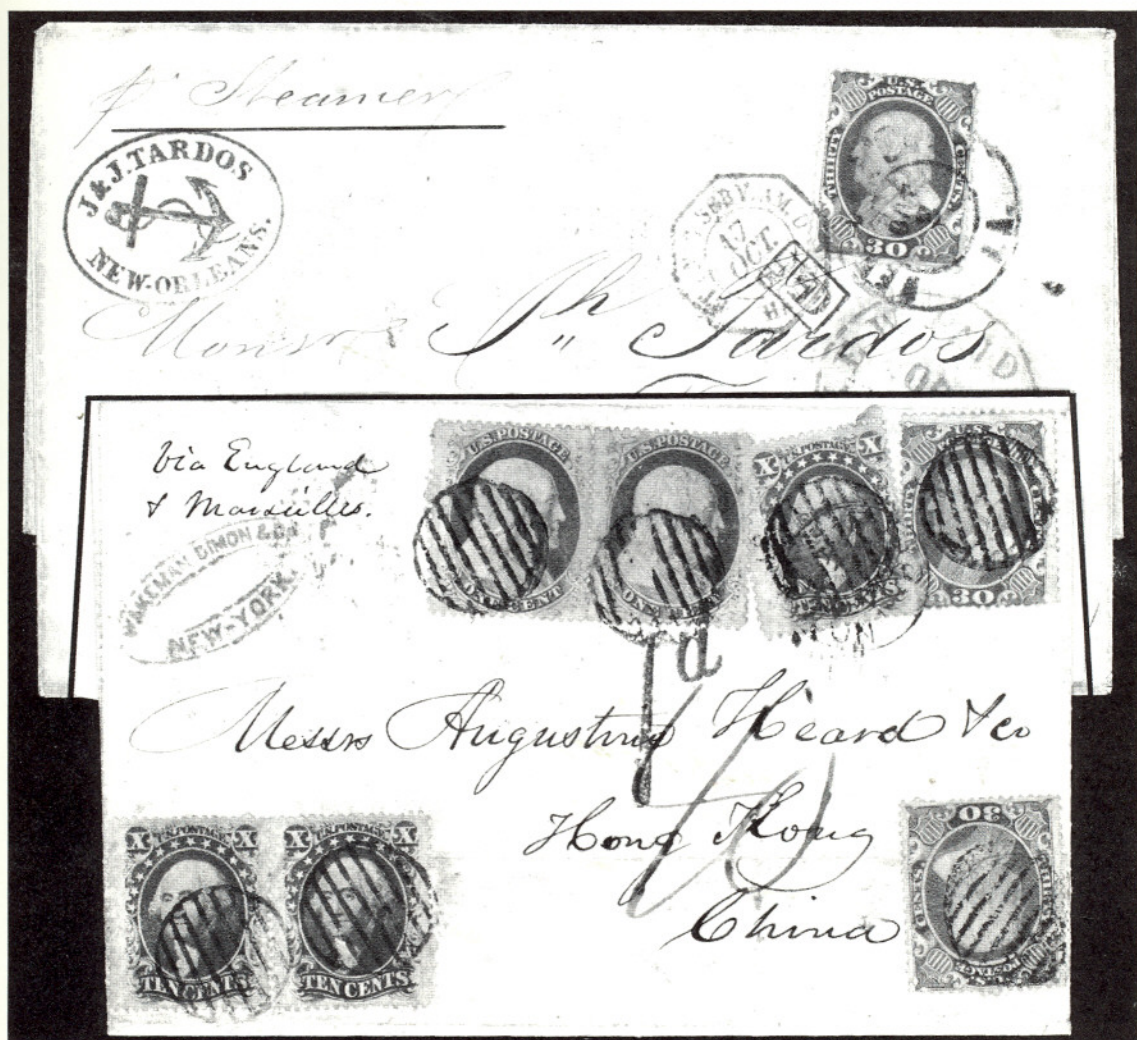 pr Steamer
J & J. TARDOS
NEW-ORLEANS.
U.S.
POSTAGE
THIRTY
CENTS
30
17
OCT.
Monsr Ph Tardos
PAID
Via England
& Marseilles.
WAKEMAN DIMON & Co
NEW-YORK.
U.S. POSTAGE
ONE CENT
U.S. POSTAGE
ONE CENT
X U.S. POSTAGE X
TEN CENTS
U.S.
THIRTY
30
1d
Messrs Augustine Heard & Co
Hong Kong
China
X U.S. POSTAGE X
TEN CENTS
X U.S. POSTAGE X
TEN CENTS
30
CENTS
THIRTY
POSTAGE
U.S.